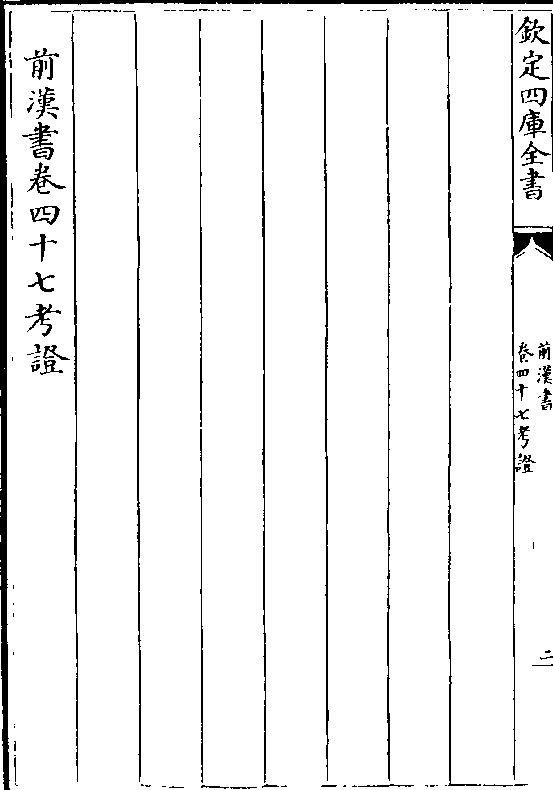 欽定四庫全書
前漢書
卷四十七考證
二
前漢書卷四十七考證